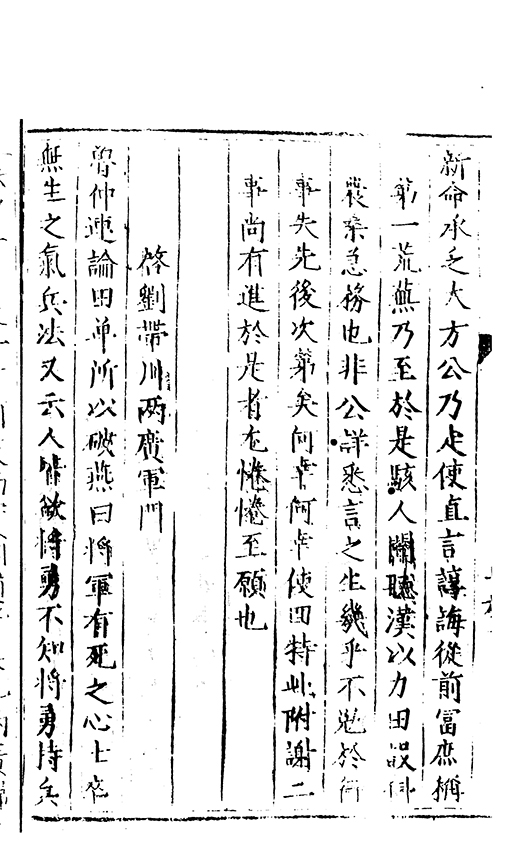 新命承乏大方公乃走使直言諄誨從前富庶稱
第一荒蕪乃至於是駭人聞聽漢以力田設科
農桑急務也非公詳悉言之生幾乎不免於何
事失先後次第矣何幸何幸使回特此附謝二
事尚有進於是者在惓惓至願也
啓劉帶川兩廣軍門
魯仲連論田单所以破燕曰將軍有死之心士卒
無生之氣兵法又云人皆欲將勇不知將勇恃兵